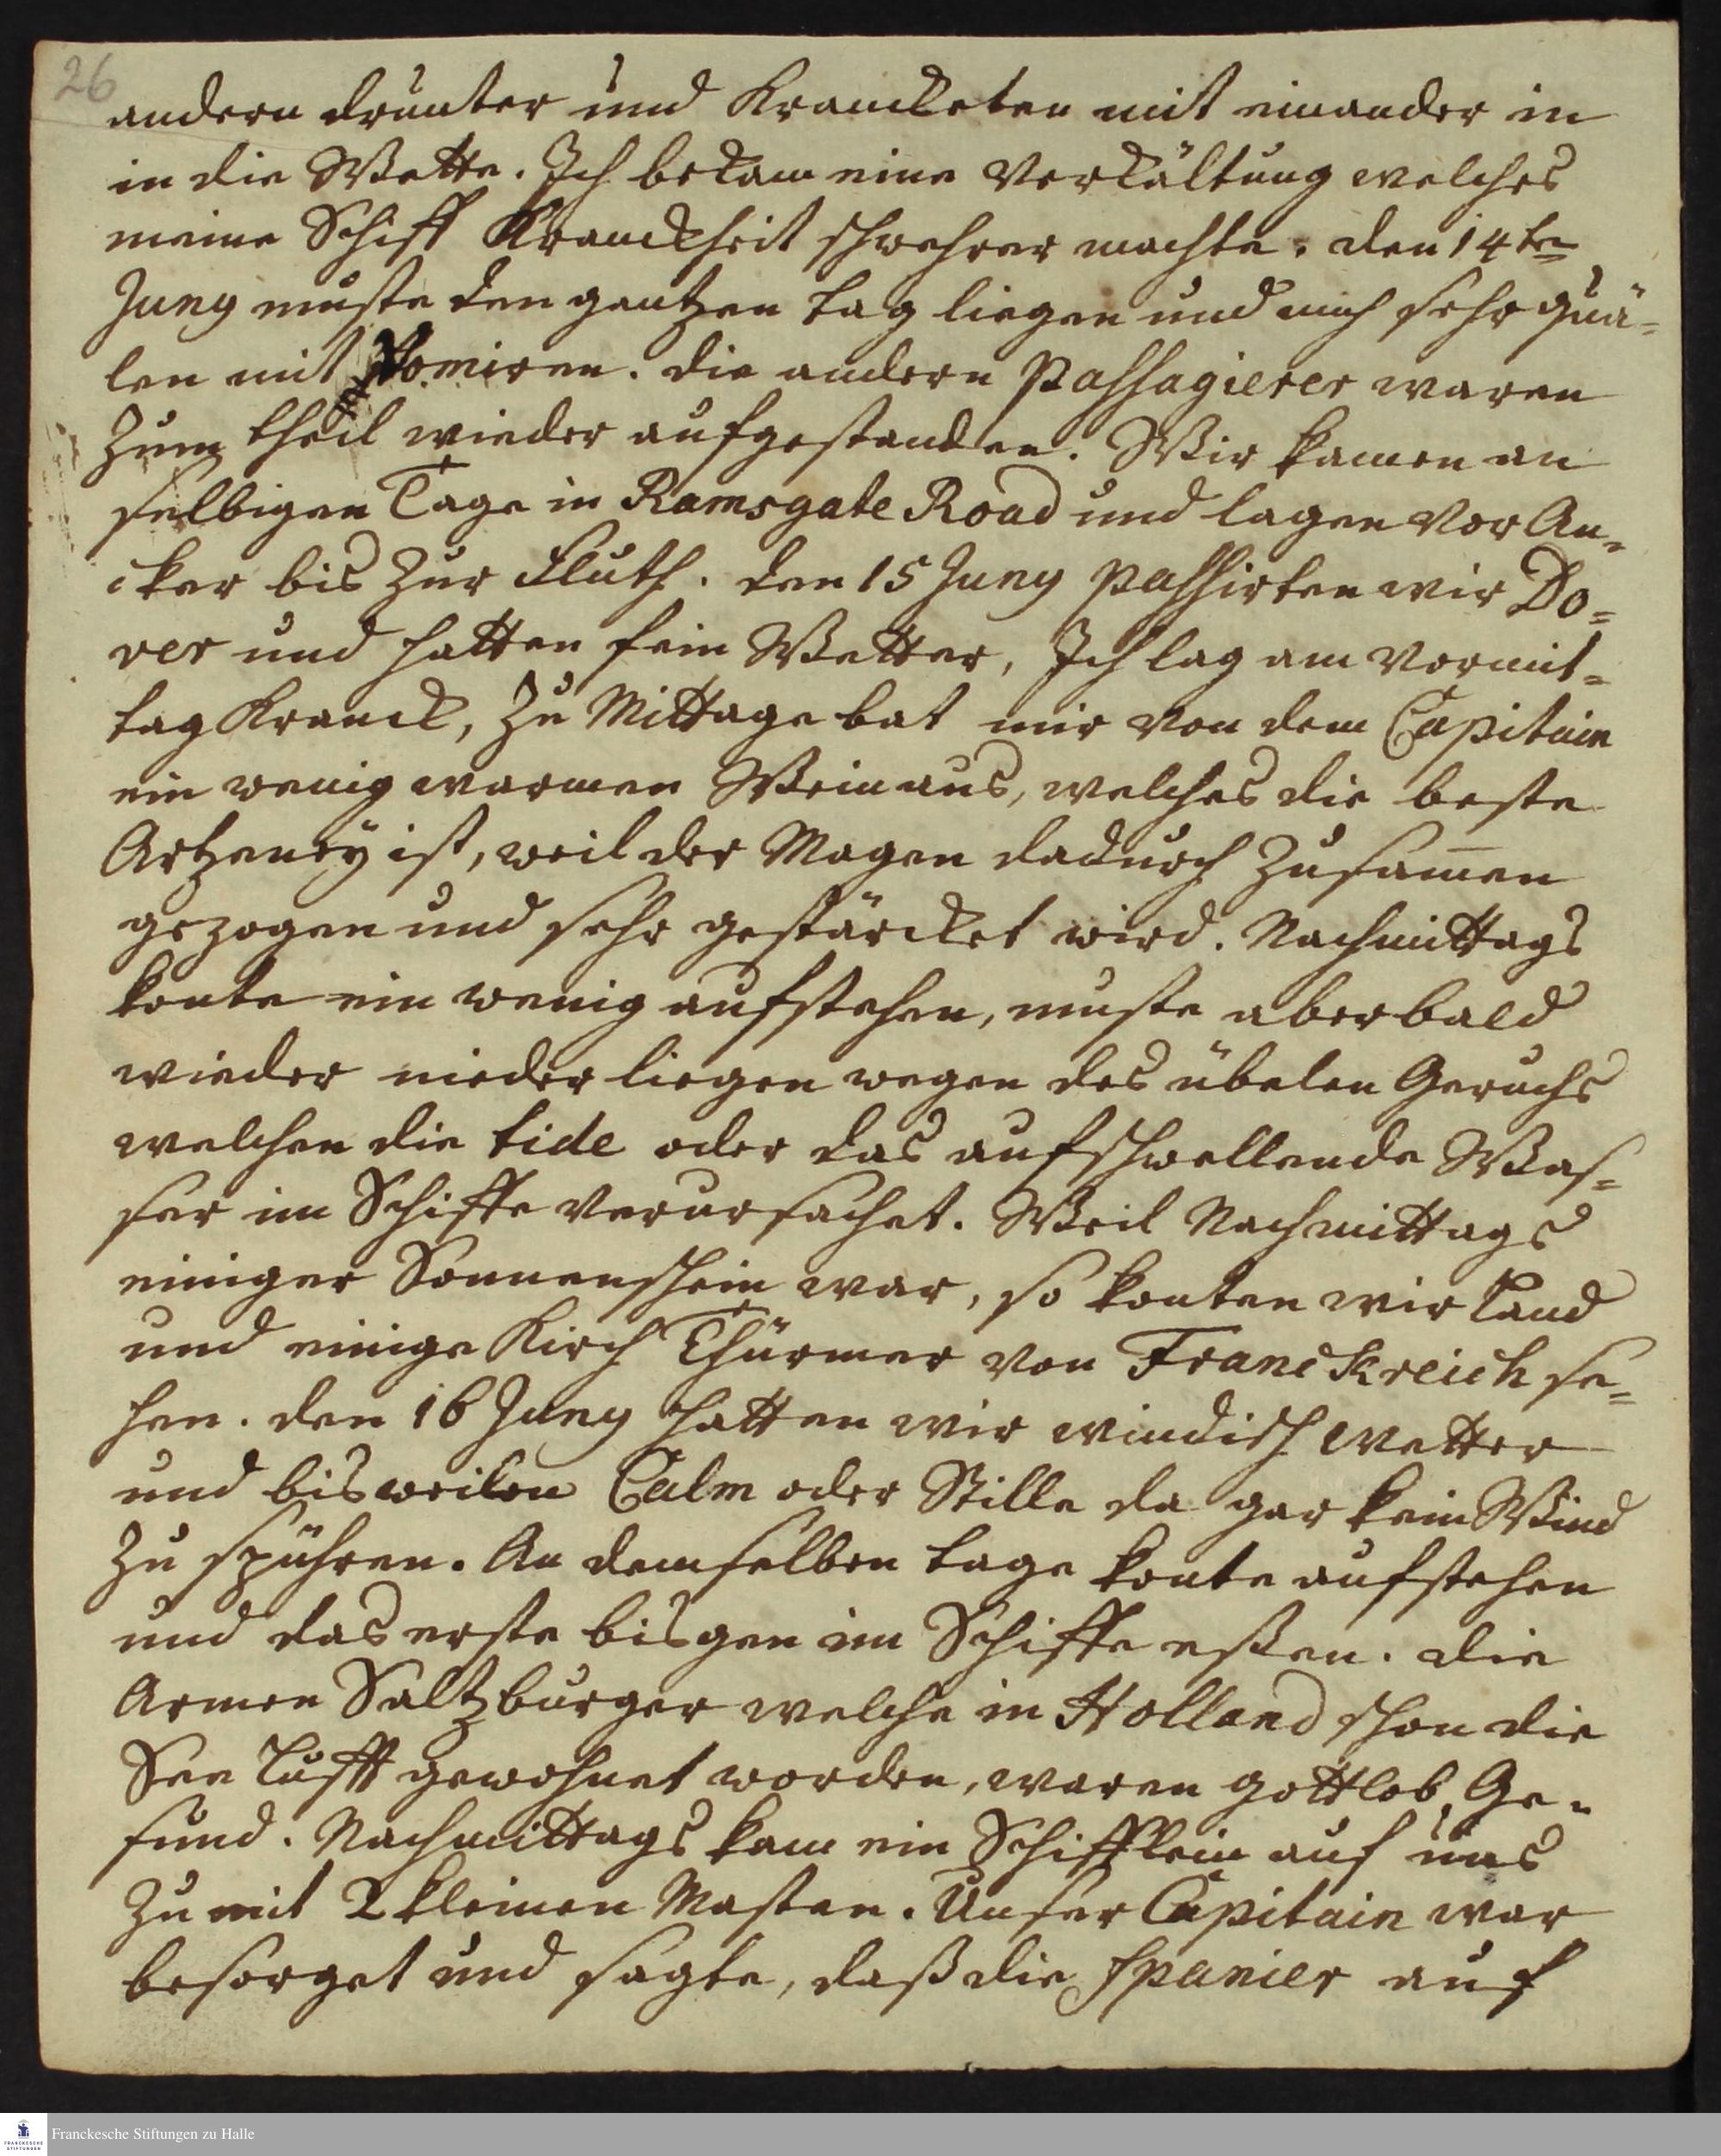 26
andern drunter und Kranckten mit einander in
in die Wette. Ich bekam eine Verkältung welches
meine Schiff Kranckheit schwehrer machte. den 14ten
Juny muste den gantzen tag liegen und mich sehr quä=
len mit Vomiren. die andern Passagierer waren
zum theil wieder aufgestanden. Wir kamen an
selbigen Tage in Ramsgate Road und lagen vor An=
cker bis zur Fluth. den 15 Juny passirten wir Do=
ver und hatten fein Wetter, Ich lag am Vormit=
tag Kranck, zu Mittage bat mir von dem Capitain
ein wenig warmen Wein aus, welches die beste
Artzeney ist, weil der Magen dadurch zusam̅en
gezogen und sehr gestärcket wird. Nachmittags
konte ein wenig aufstehen, muste aber bald
wieder nieder liegen wegen des übelen Geruchs
welchen die tide oder das aufschwellende Was=
ser im Schiffe verursachet. Weil Nachmittags
einiger Sonnenschein war, so konten wir Land
und einige Kirch Thürmer von Franckreich se=
hen. den 16 Juny hatten wir windisch Wetter
und bisweilen Calm oder Stille da gar kein Wind
zu spühren. An demselben tage konte aufstehen
und das erste bisgen im Schiffe eßen. die
Armen Saltzburger welche in Holland schon die
See Lufft gewohnet worden, waren gottlob Ge=
sund. Nachmittags kam ein Schifflein auf uns
zu mit 2 kleinen Masten. Unser Capitain war
besorget und sagte, daß die Spanier auf
Franckesche Stiftungen zu Halle
FRANCKESCHE
STIFTUNGEN